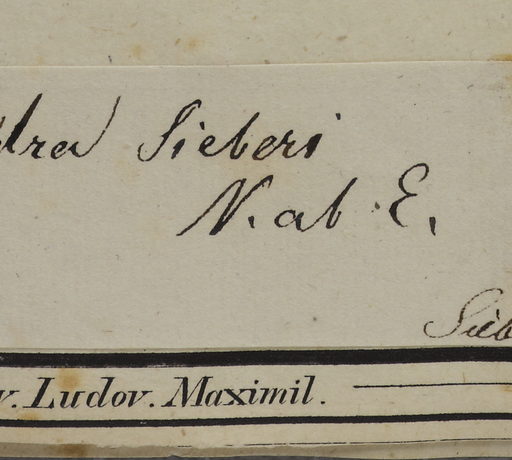 dra Sieberi
N. ab E.
Sieb
v. Ludov. Maximil.